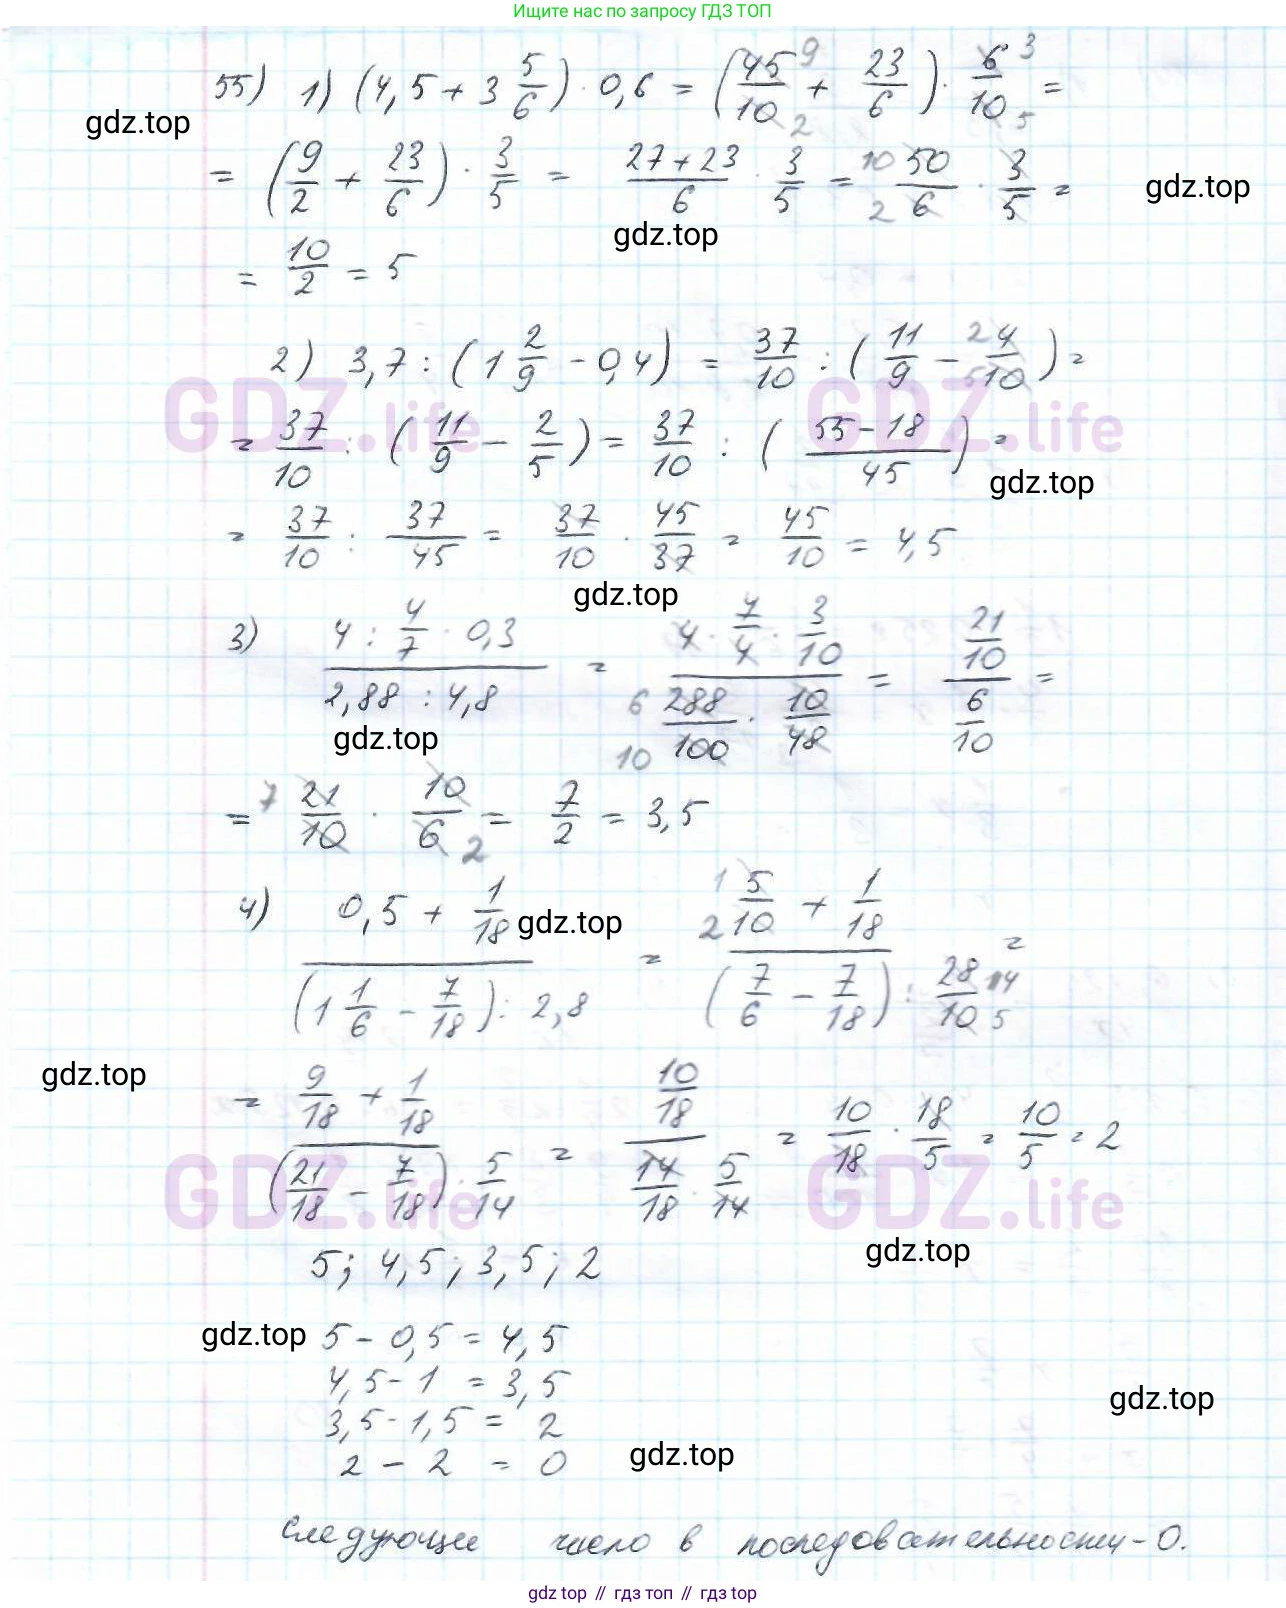 Ищите нас по запросу ГДЗ ТОП
55) 1) (4,5 + 3 5/6) · 0,6 = (45/10 9 2 + 23/6) · 6/10 3 5 =
gdz.top
= (9/2 + 23/6) · 3/5 = 27+23/6 · 3/5 = 10 2 50/6 · 3/5 =
gdz.top
gdz.top
= 10/2 = 5
2) 3,7 : (1 2/9 - 0,4) = 37/10 : (11/9 - 2 5 4/10) =
GDZ.life GDZ.life
= 37/10 : (11/9 - 2/5) = 37/10 : (55-18/45) =
gdz.top
= 37/10 : 37/45 = 37/10 · 45/37 = 45/10 = 4,5
gdz.top
3) 4 : 4/7 · 0,3 / 2,88 : 4,8 = 4 · 7/4 · 3/10 / 6 10 288/100 · 10/48 = 21/10 / 6/10 =
gdz.top
= 7 21/10 · 10/6 2 = 7/2 = 3,5
4) 0,5 + 1/18 / (1 1/6 - 7/18) : 2,8 = 1 2 5/10 + 1/18 / (7/6 - 7/18) : 28/10 14 5 =
gdz.top
gdz.top
= 9/18 + 1/18 / (21/18 - 7/18) · 5/14 = 10/18 / 14/18 · 5/14 = 10/18 · 18/5 = 10/5 = 2
GDZ.life GDZ.life
5; 4,5; 3,5; 2
gdz.top
gdz.top 5 - 0,5 = 4,5
4,5 - 1 = 3,5
gdz.top
3,5 - 1,5 = 2
2 - 2 = 0
gdz.top
Следующее число в последовательности - 0.
gdz top // гдз топ // гдз top